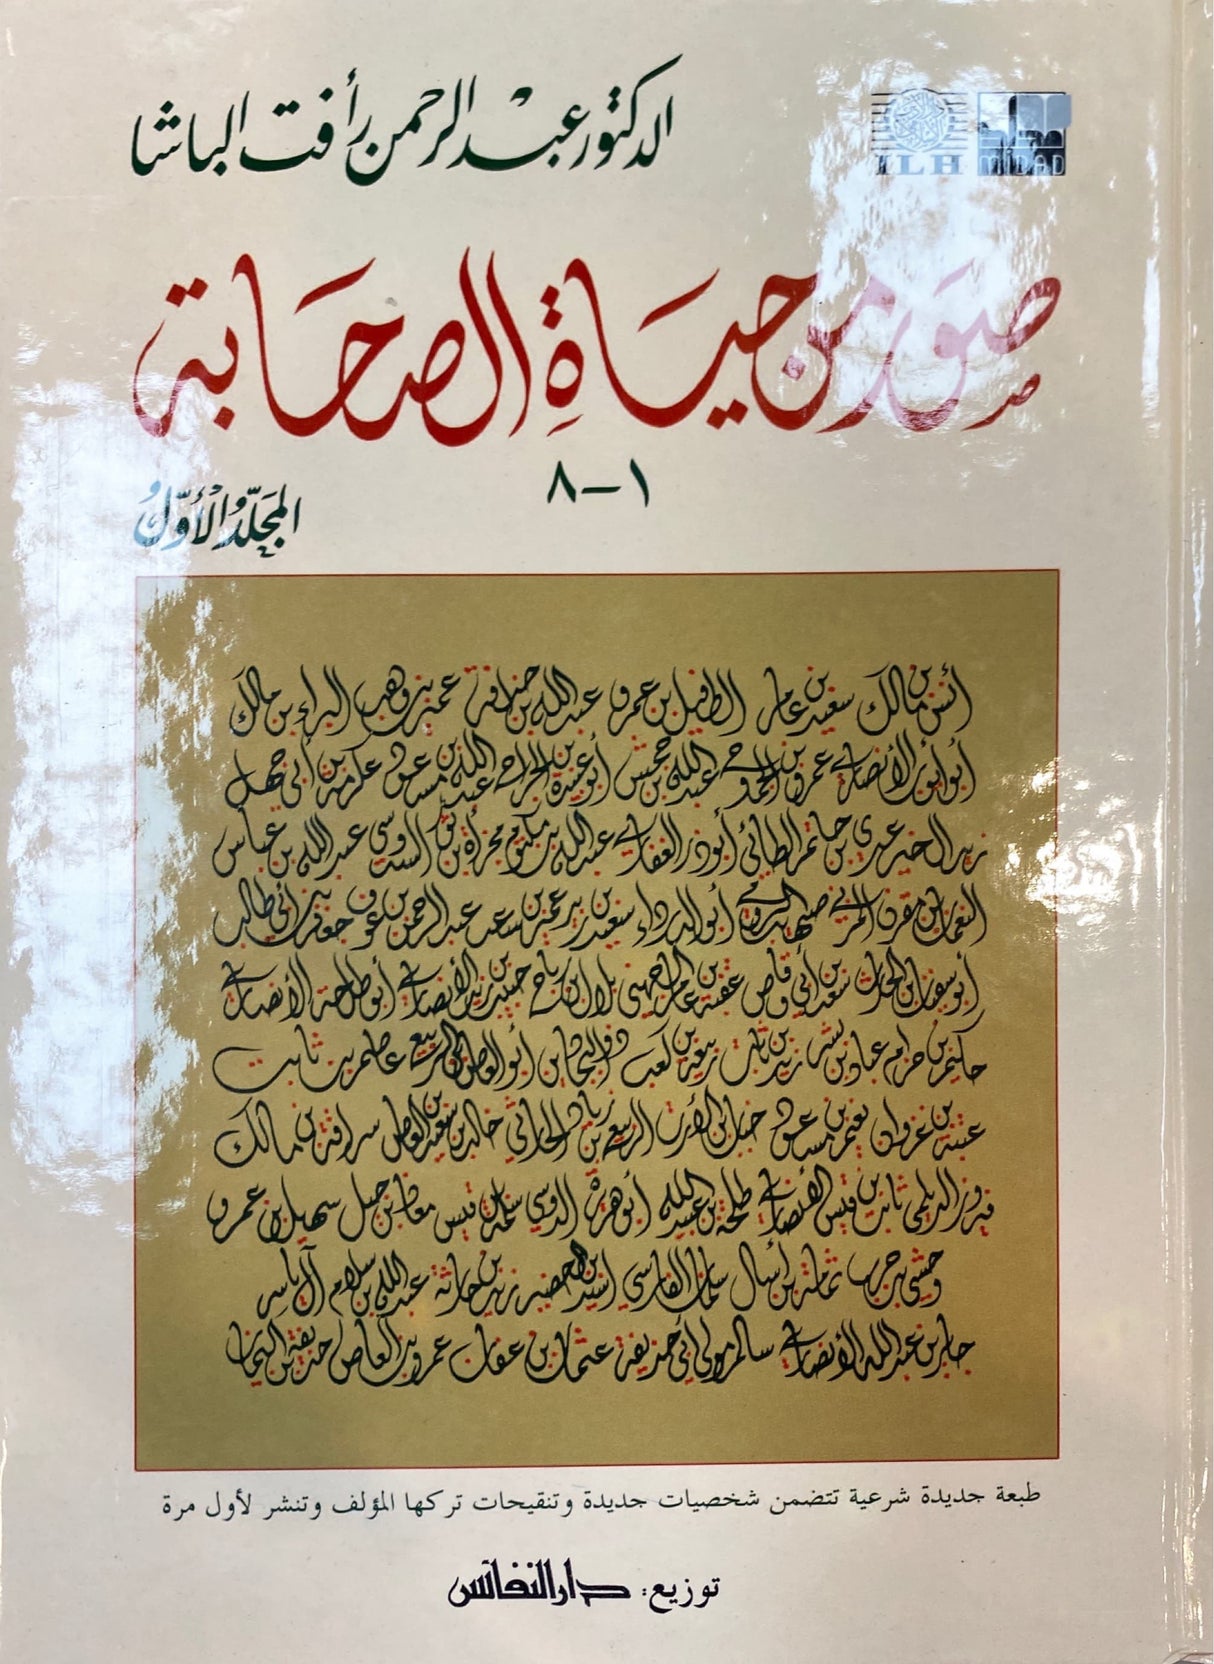 الدكتور عبد الرحمن رأفت الباشا
ILH
مداد
MIDAD
صور من حياة الصحابة
١-٨
المجَلّدُ الأوّلُ
أنس بن مالك سعيد بن عامر الطفيل بن عمرو عبد الله بن حذافة عمير بن وهب البراء بن مالك
أبو أيوب الأنصاري عمرو بن الجموح عبد الله بن جحش أبو عبيدة بن الجراح عبد الله بن مسعود عكرمة بن أبي جهل
زيد الخير عدي بن حاتم الطائي أبو ذر الغفاري عبد الله بن مكتوم مجزأة بن ثور السدوسي عبد الله بن عباس
النعمان بن مقرن المزني صهيب الرومي أبو الدرداء سعيد بن زيد عمير بن سعد عبد الرحمن بن عوف جعفر بن أبي طالب
أبو سفيان بن الحارث سعد بن أبي وقاص عقبة بن عامر الجهني بلال بن رباح حبيب بن زيد الأنصاري أبو طلحة الأنصاري
حكيم بن حزام عباد بن بشر زيد بن ثابت ربيعة بن كعب ذو البجادين أبو العاص بن الربيع عاصم بن ثابت
عتبة بن غزوان نعيم بن مسعود خباب بن الأرت الربيع بن زياد الحارثي خالد بن سعيد بن العاص سراقة بن مالك
فيروز الديلمي ثابت بن قيس الأنصاري طلحة بن عبيد الله أبو هريرة الدوسي سلمة بن قيس معاذ بن جبل سهيل بن عمرو
وحشي بن حرب ثمامة بن أثال سلمان الفارسي أسيد بن الحضير زيد بن حارثة عبد الله بن سلام آل ياسر
جابر بن عبد الله الأنصاري سالم مولى أبي حذيفة عثمان بن عفان عمرو بن العاص حذيفة بن اليمان
طبعة جديدة شرعية تتضمن شخصيات جديدة وتنقيحات تركها المؤلف وتنشر لأول مرة
توزيع: دار النفائس